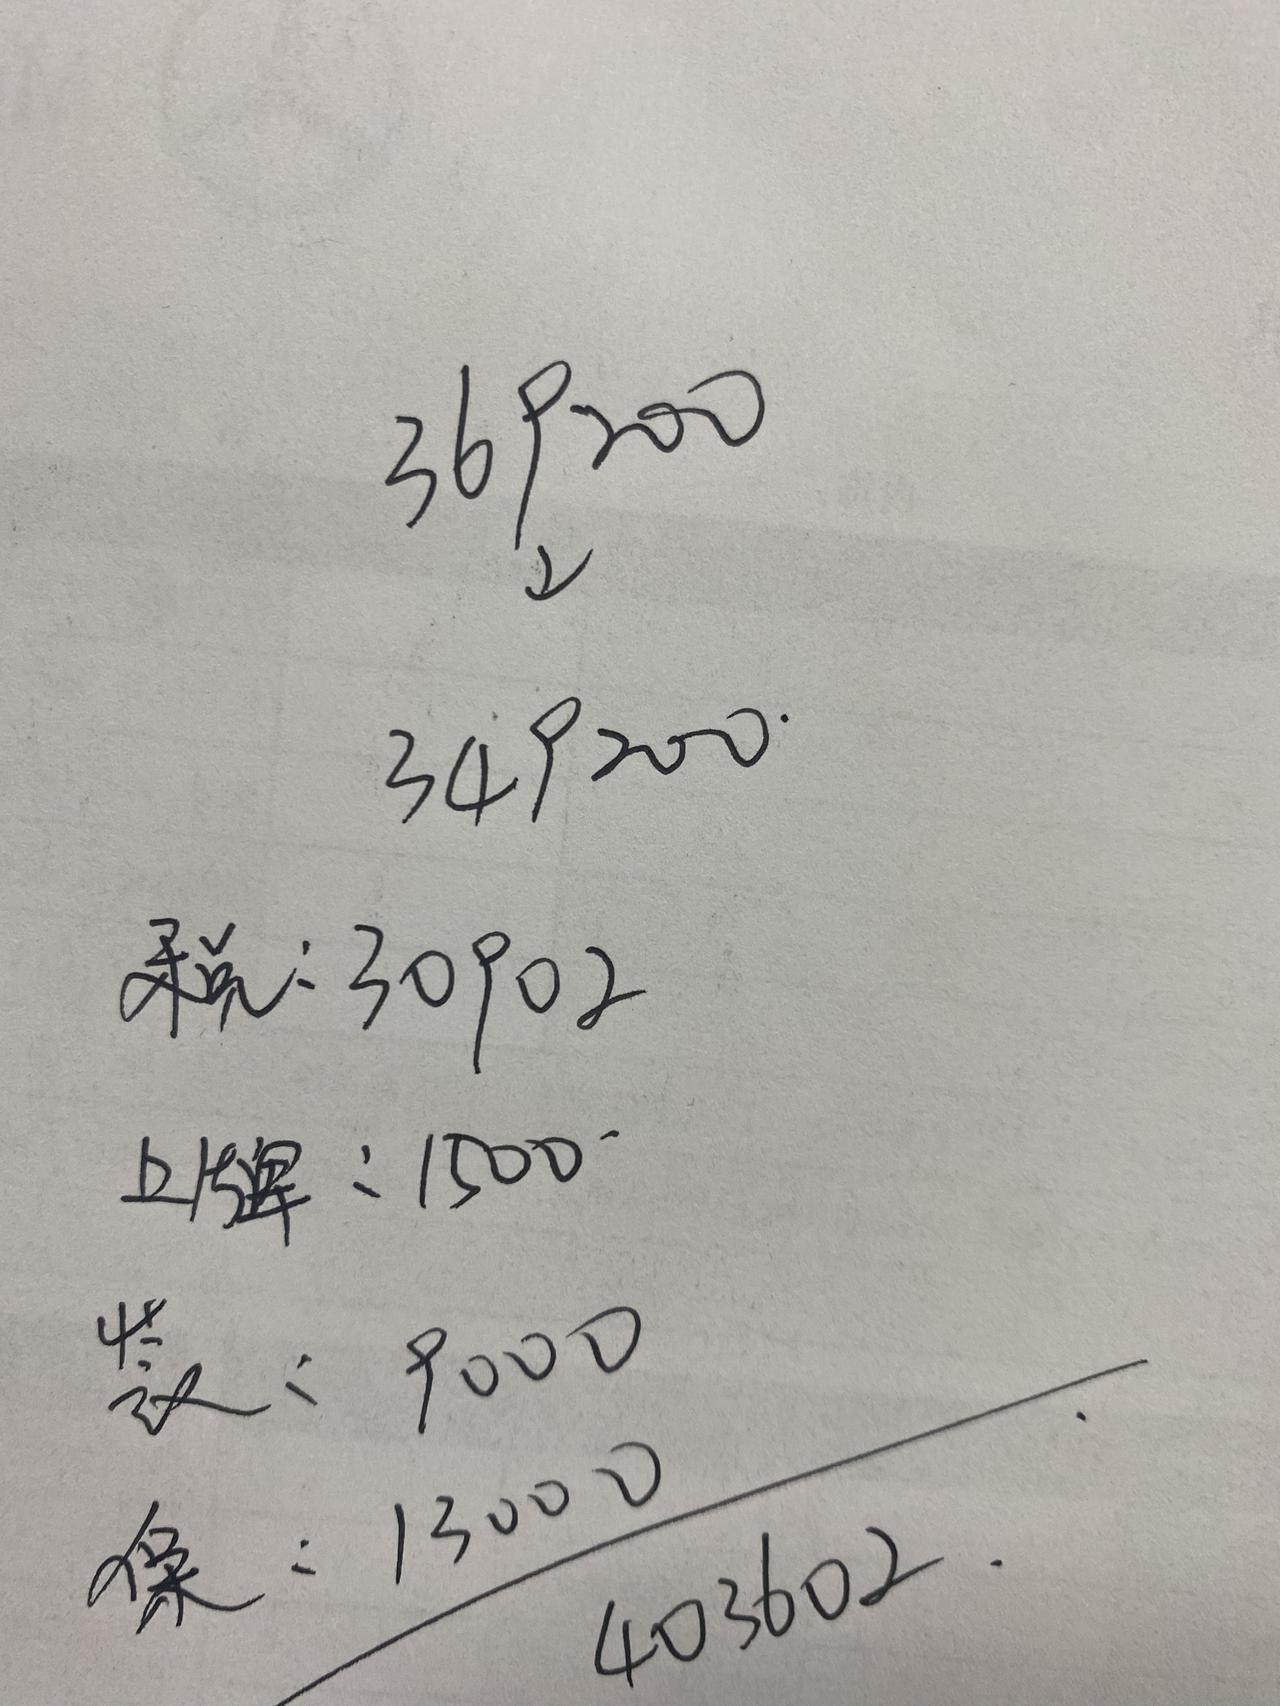 369200
↓
349200.
税:30902
上牌:1500
装:9000
保:13000
403602.